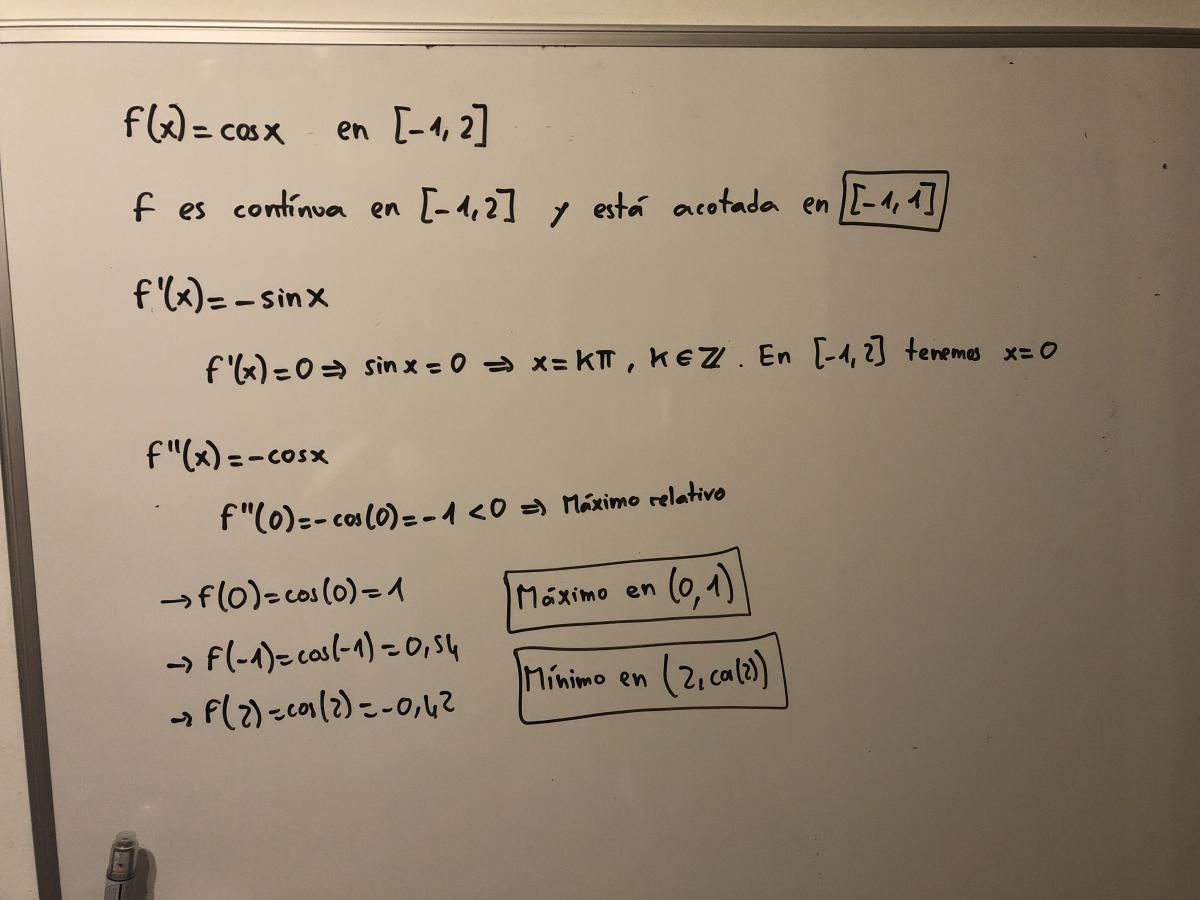 f(x)=cosx en [-1,2]
f es contínua en [-1,2] y está acotada en [-1,1]
f'(x)=-sinx
f'(x)=0⇒ sinx=0 ⇒ x=kπ, k∈ℤ. En [-1,2] tenemos x=0
f''(x)=-cosx
f''(0)=-cos(0)=-1<0 ⇒ Máximo relativo
→f(0)=cos(0)=1 Máximo en (0,1)
→f(-1)=cos(-1)=0,54
Mínimo en (2,cos(2))
→f(2)=cos(2)=-0,42